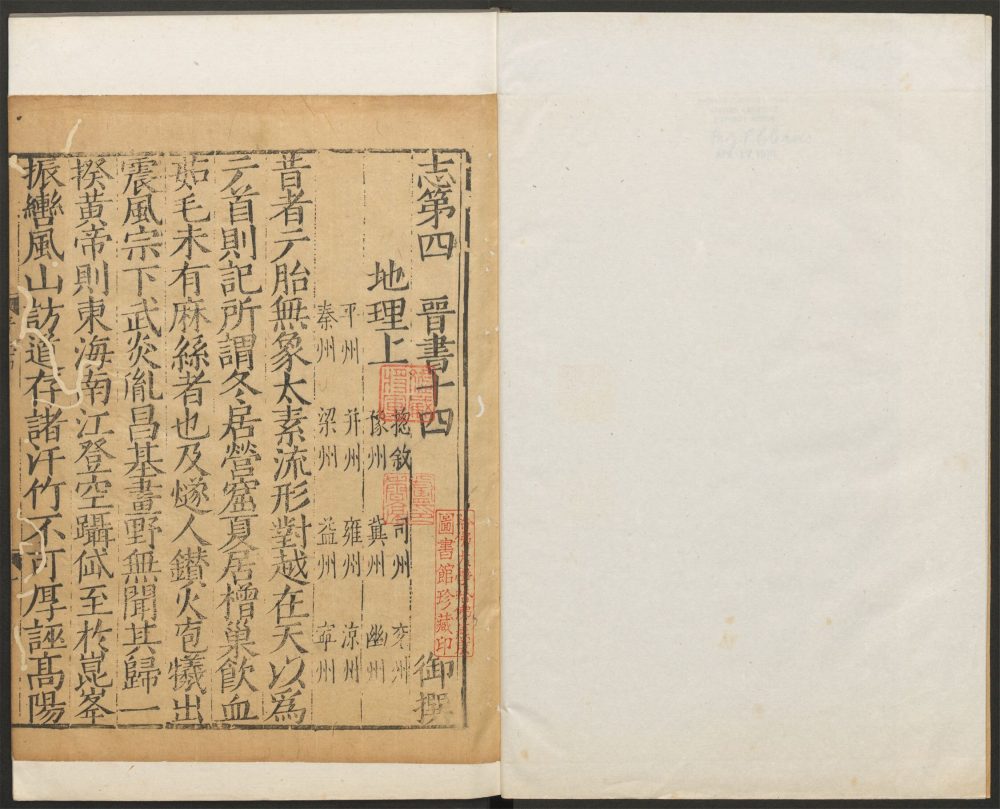 志第四 晉書十四 御撰
地理上
揔敘 司州 兖州
豫州 冀州 幽州
平州 并州 雍州 涼州
秦州 梁州 益州 寧州
昔者元胎無象太素流形對越在天以爲
元首則記所謂冬居營窟夏居橧巢飲血
茹毛未有麻絲者也及燧人鑽火庖犧出
震風宗下武炎胤昌基畫野無聞其歸一
揆黃帝則東海南江登空躡岱至於崑峯
振轡風山訪道存諸汗竹不可厚誣髙陽
圖書館珍藏印